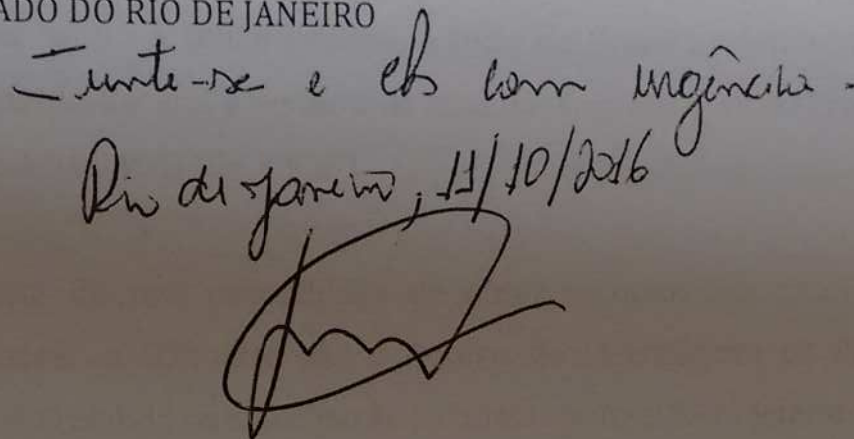 ADO DO RIO DE JANEIRO
Junte-se e cls com urgência.
Rio de Janeiro, 11/10/2016